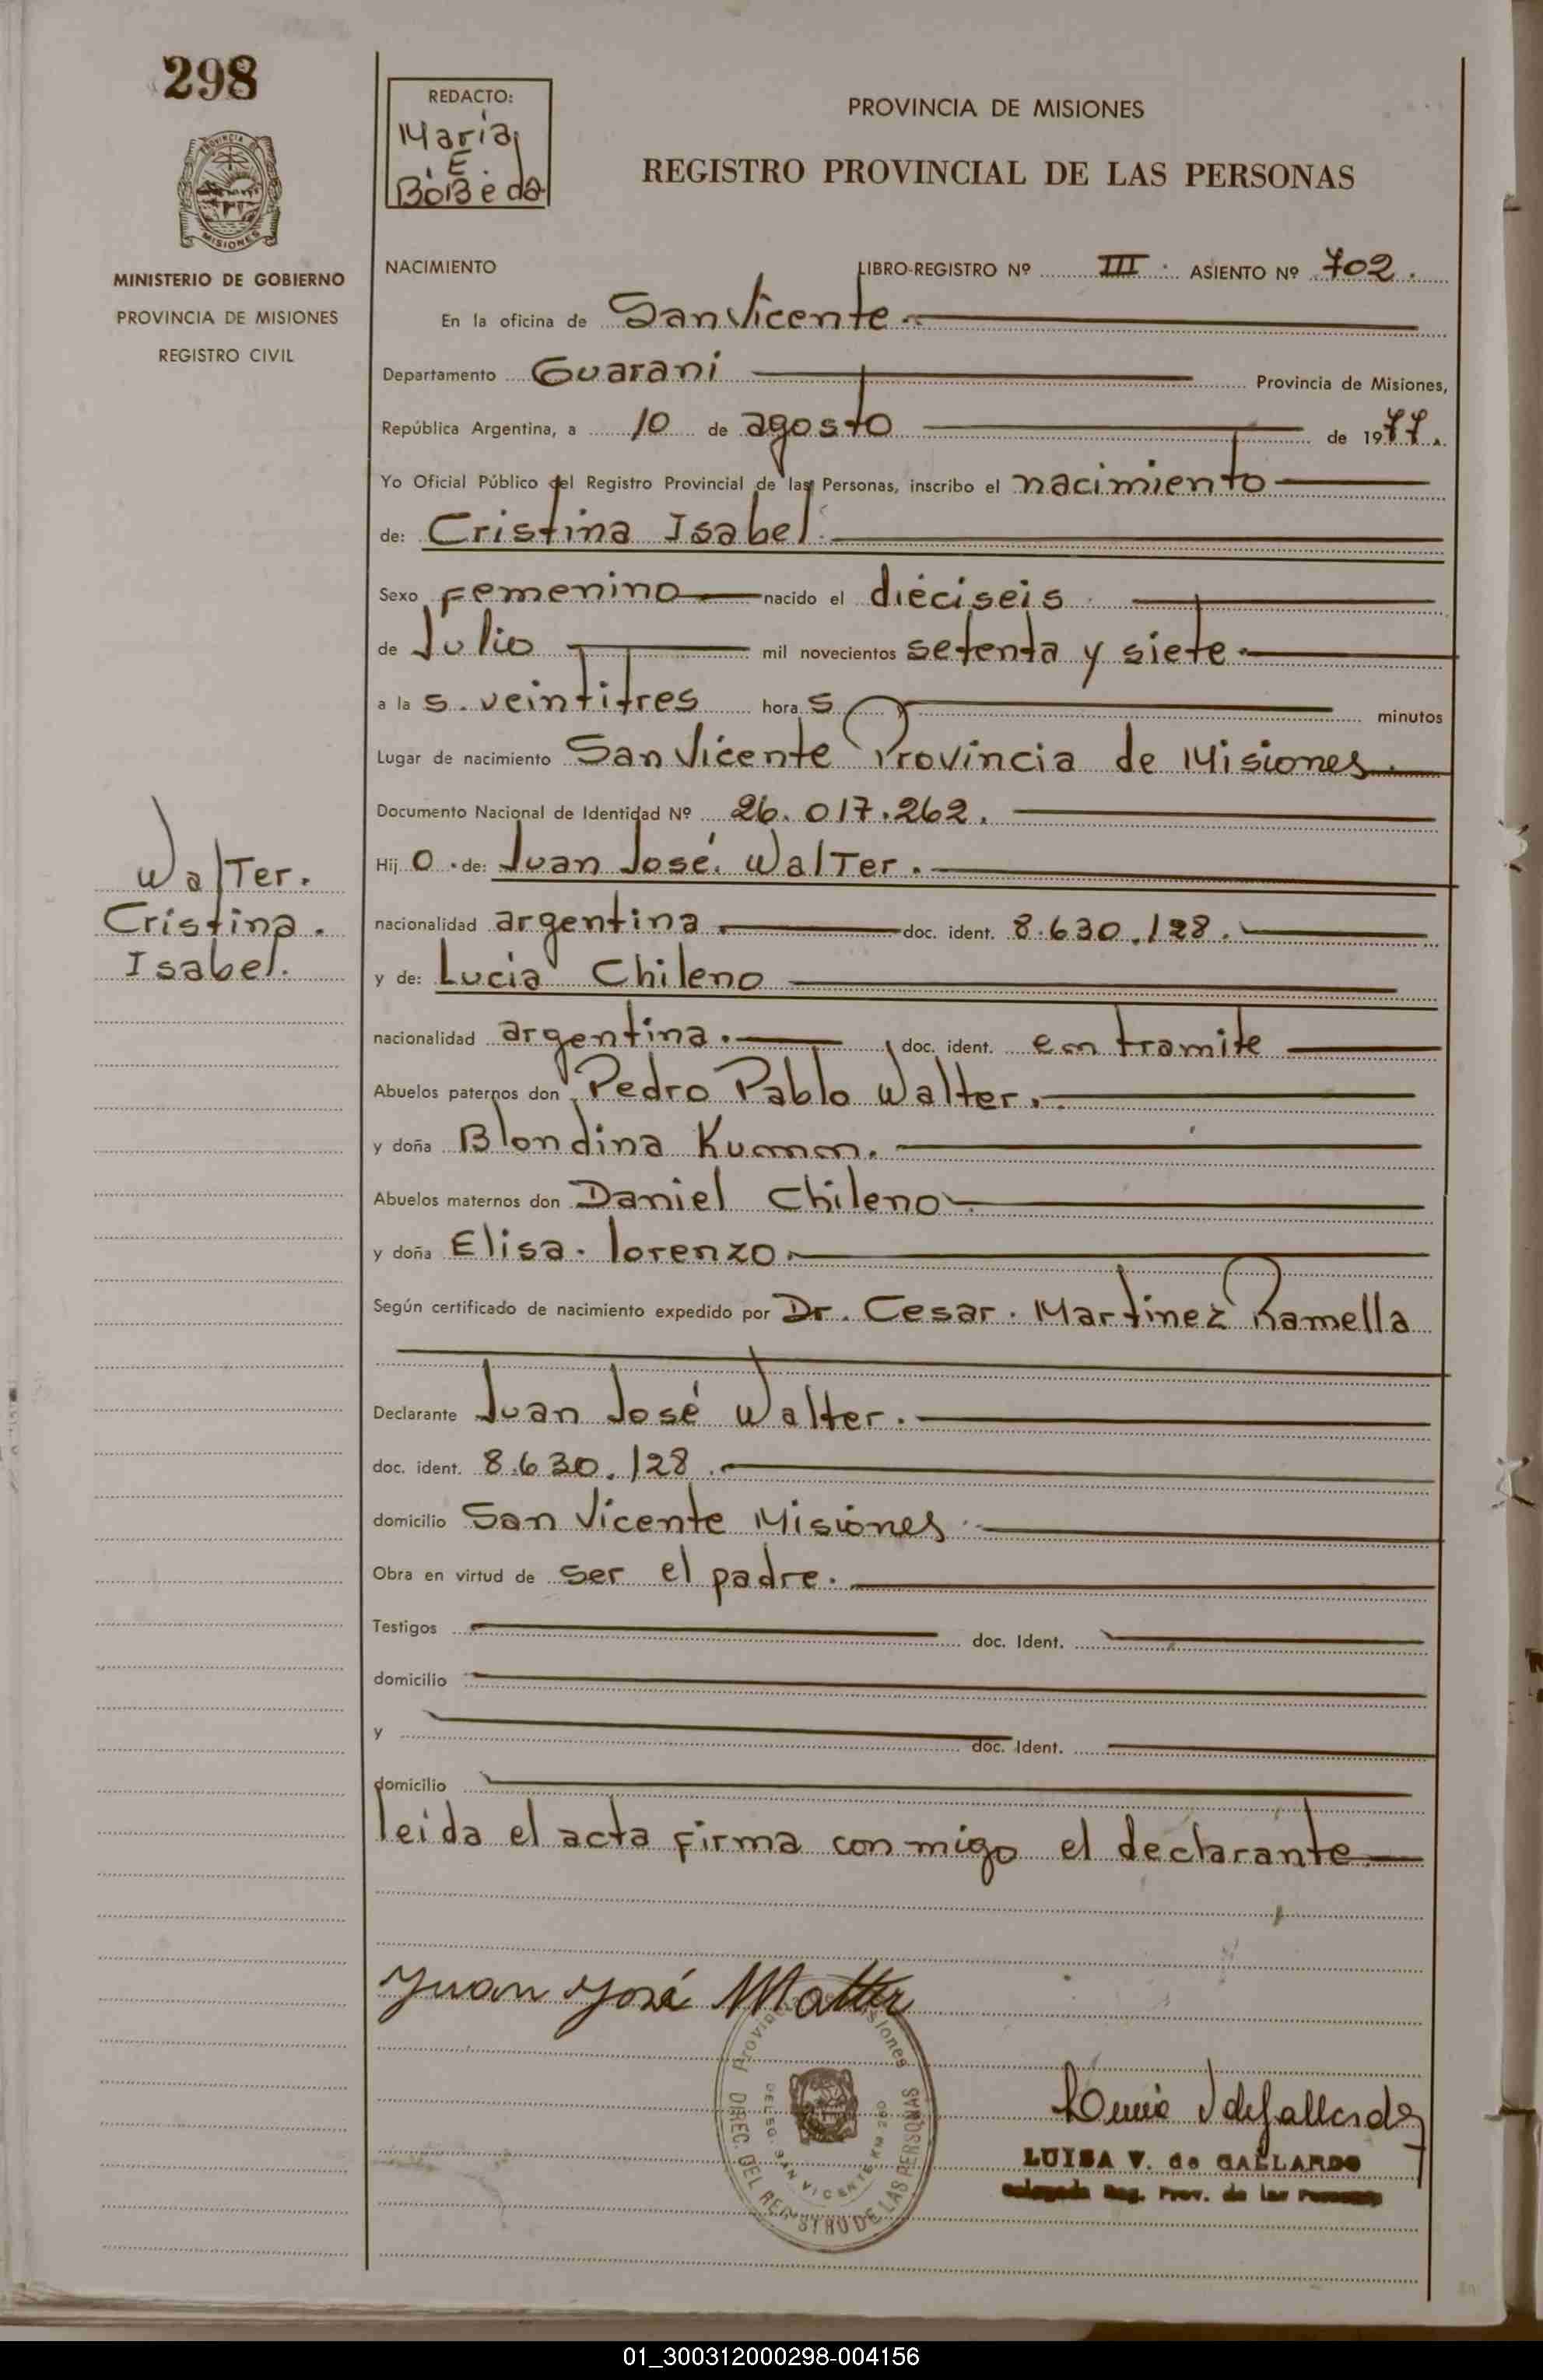 298
REDACTO:
Maria
E.
BoBeda
PROVINCIA DE MISIONES
REGISTRO PROVINCIAL DE LAS PERSONAS
PROVINCIA
MISIONES
MINISTERIO DE GOBIERNO
PROVINCIA DE MISIONES
REGISTRO CIVIL
NACIMIENTO LIBRO-REGISTRO Nº III. ASIENTO Nº 702.
En la oficina de San Vicente.
Departamento Guarani Provincia de Misiones,
República Argentina, a 10 de agosto de 1977.
Yo Oficial Público del Registro Provincial de las Personas, inscribo el nacimiento
de: Cristina Isabel.
Sexo femenino nacido el dieciseis
de Julio mil novecientos setenta y siete.
a la s. veintitres hora s minutos
Lugar de nacimiento San Vicente Provincia de Misiones.
Documento Nacional de Identidad Nº 26.017.262.
Hij o. de: Juan José. Walter.
nacionalidad argentina. doc. ident. 8.630.128.
y de: Lucia Chileno
nacionalidad argentina. doc. ident. en tramite
Abuelos paternos don Pedro Pablo Walter.
y doña Blondina Kumm.
Abuelos maternos don Daniel Chileno.
y doña Elisa. lorenzo.
Según certificado de nacimiento expedido por Dr. Cesar. Martinez Ramella
Declarante Juan José Walter.
doc. ident. 8.630.128.
domicilio San Vicente Misiones.
Obra en virtud de ser el padre.
Testigos doc. Ident.
domicilio
y doc. Ident.
domicilio
leida el acta firma con migo el declarante.
Walter.
Cristina.
Isabel.
Juan José Walter
Provincia Misiones
DIREC. DEL REGISTRO DE LAS PERSONAS
DELEG. SAN VICENTE KM 260
LUISA V. de GALLARDO
Delegada Reg. Prov. de las Personas
01_300312000298-004156